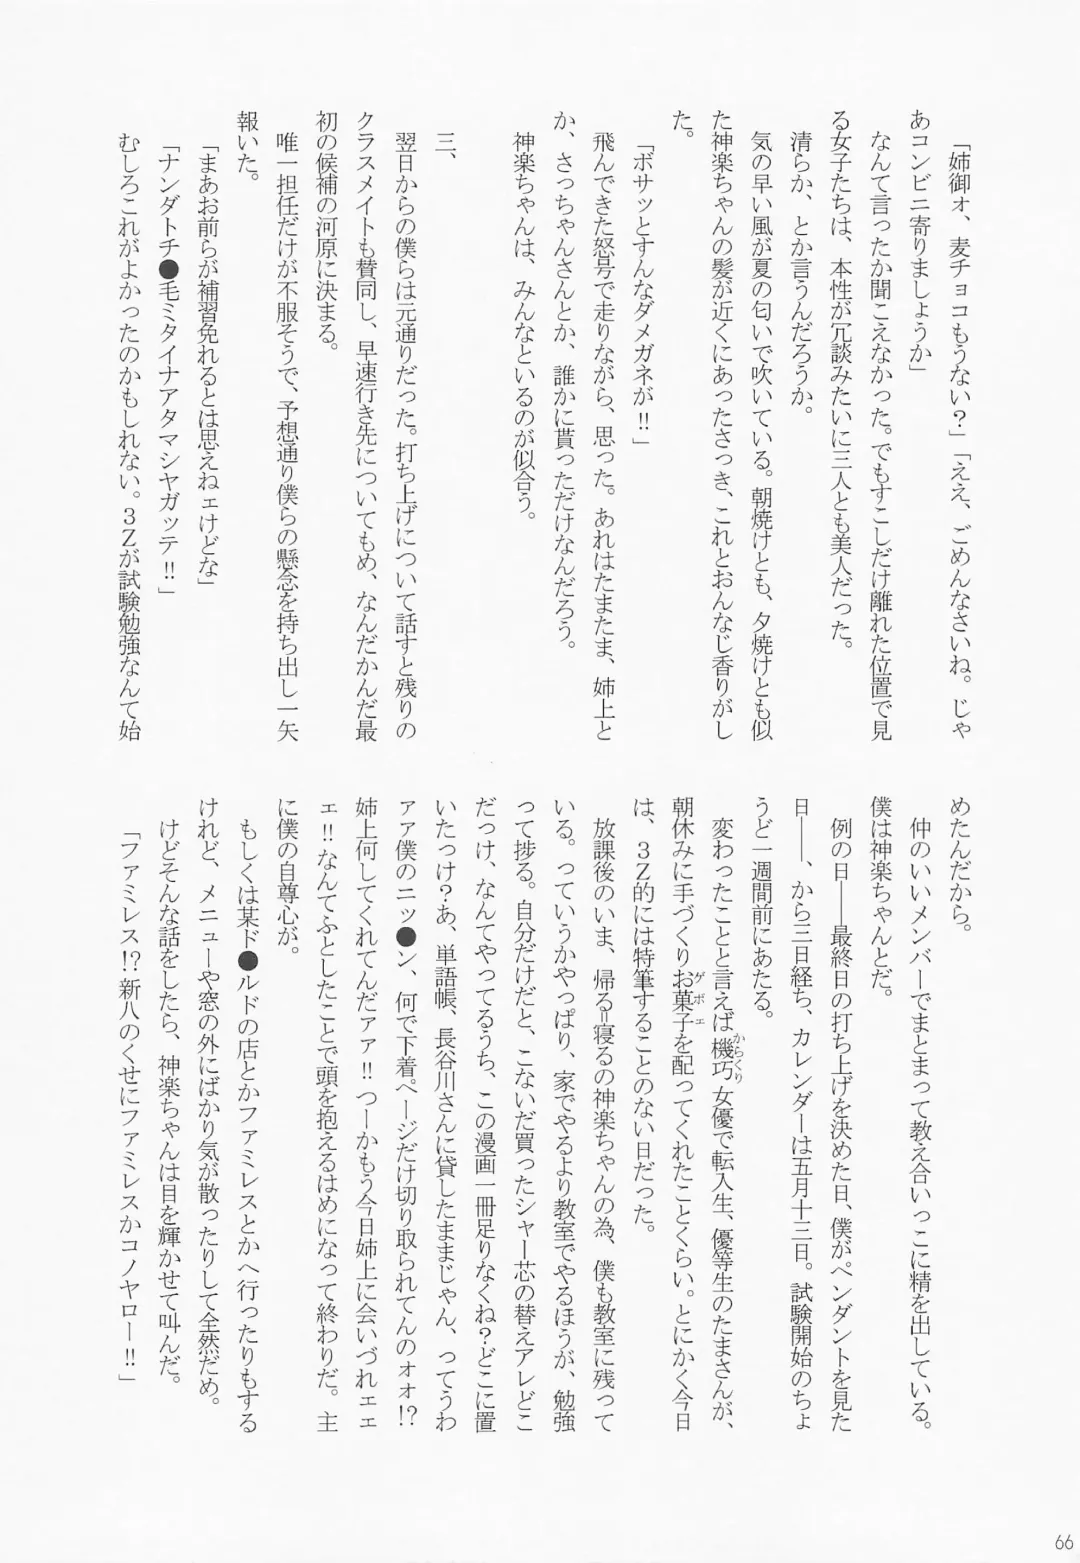 「姉御ォ、麦チョコもうない？」「ええ、ごめんなさいね。じゃ
あコンビニ寄りましょうか」
なんて言ったか聞こえなかった。でもすこしだけ離れた位置で見
る女子たちは、本性が冗談みたいに三人とも美人だった。
清らか、とか言うんだろうか。
気の早い風が夏の匂いで吹いている。朝焼けとも、夕焼けとも似
た神楽ちゃんの髪が近くにあったさっき、これとおんなじ香りがし
た。
「ボサッとすんなダメガネが!!」
飛んできた怒号で走りながら、思った。あれはたまたま、姉上と
か、さっちゃんさんとか、誰かに貰っただけなんだろう。
神楽ちゃんは、みんなといるのが似合う。
三、
翌日からの僕らは元通りだった。打ち上げについて話すと残りの
クラスメイトも賛同し、早速行き先についてもめ、なんだかんだ最
初の候補の河原に決まる。
唯一担任だけが不服そうで、予想通り僕らの懸念を持ち出し一矢
報いた。
「まあお前らが補習免れるとは思えねェけどな」
「ナンダトチ●毛ミタイナアタマシヤガッテ!!」
むしろこれがよかったのかもしれない。３Ｚが試験勉強なんて始
めたんだから。
仲のいいメンバーでまとまって教え合いっこに精を出している。
僕は神楽ちゃんとだ。
例の日――最終日の打ち上げを決めた日、僕がペンダントを見た
日――、から三日経ち、カレンダーは五月十三日。試験開始のちょ
うど一週間前にあたる。
変わったことと言えば機巧女優で転入生、優等生のたまさんが、
からくり
朝休みに手づくりお菓子を配ってくれたことくらい。とにかく今日
ゲボエ
は、３Ｚ的には特筆することのない日だった。
放課後のいま、帰る＝寝るの神楽ちゃんの為、僕も教室に残って
いる。っていうかやっぱり、家でやるより教室でやるほうが、勉強
って捗る。自分だけだと、こないだ買ったシャー芯の替えアレどこ
だっけ、なんてやってるうち、この漫画一冊足りなくね？どこに置
いたっけ？あ、単語帳、長谷川さんに貸したままじゃん、ってうわ
ァァ僕のニッ●ン、何で下着ページだけ切り取られてんのォォ!?
姉上何してくれてんだァァ!!つーかもう今日姉上に会いづれェェ
ェ!!なんてふとしたことで頭を抱えるはめになって終わりだ。主
に僕の自尊心が。
もしくは某ド●ルドの店とかファミレスとかへ行ったりもする
けれど、メニューや窓の外にばかり気が散ったりして全然だめ。
けどそんな話をしたら、神楽ちゃんは目を輝かせて叫んだ。
「ファミレス!?新八のくせにファミレスかコノヤロー!!」
66